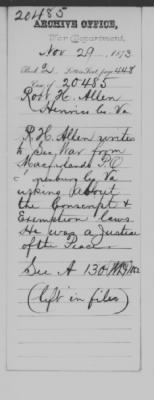 20485
ARCHIVE OFFICE,
War Department,
Nov 29 1873
Book 2, Letters Recd, page 448
20485
Robt H. Allen
Henrico Co. Va
R. H. Allen writes
to Sec. War from
P.O
Co. Va
asking about
the Conscript &
Exemption laws
He was a Justice
of the Peace.
See A 130
(left in files)